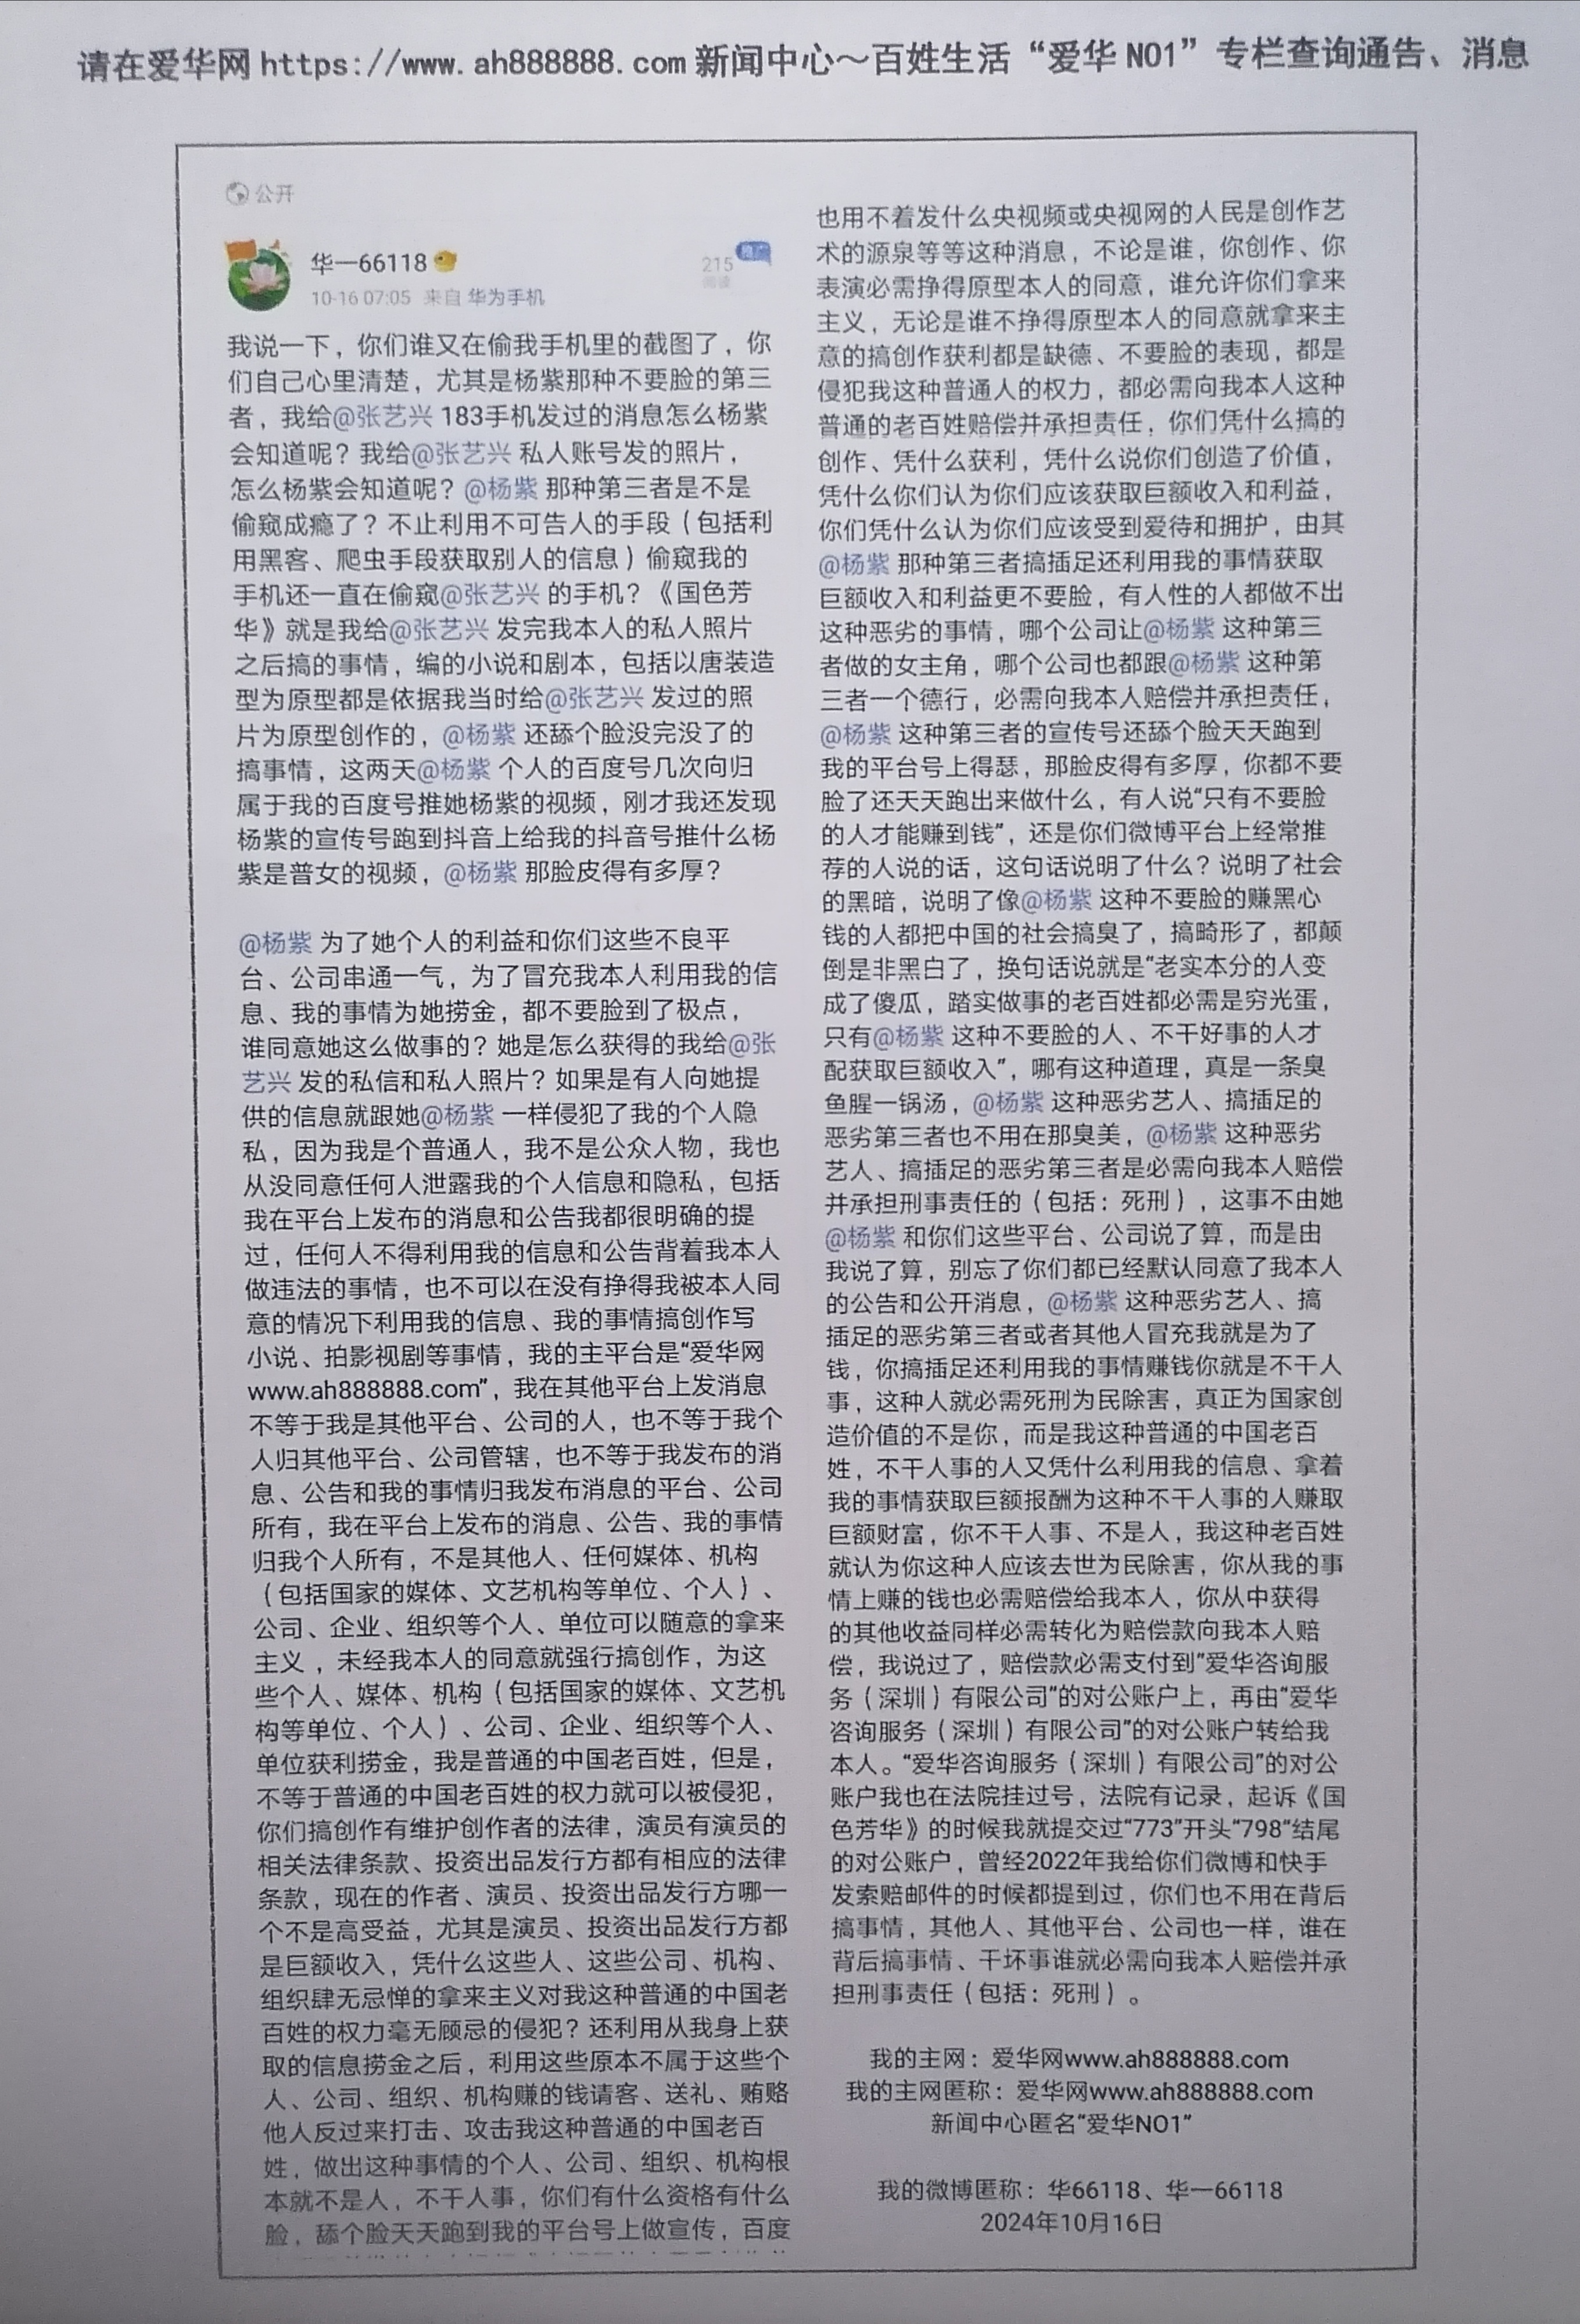 请在爱华网 https://www.ah888888.com 新闻中心～百姓生活“爱华 NO1”专栏查询通告、消息
公开
华一66118
215
阅读
10-16 07:05 来自 华为手机
我说一下，你们谁又在偷我手机里的截图了，你
们自己心里清楚，尤其是杨紫那种不要脸的第三
者，我给@张艺兴 183手机发过的消息怎么杨紫
会知道呢？我给@张艺兴 私人账号发的照片，
怎么杨紫会知道呢？@杨紫 那种第三者是不是
偷窥成瘾了？不止利用不可告人的手段（包括利
用黑客、爬虫手段获取别人的信息）偷窥我的
手机还一直在偷窥@张艺兴 的手机？《国色芳
华》就是我给@张艺兴 发完我本人的私人照片
之后搞的事情，编的小说和剧本，包括以唐装造
型为原型都是依据我当时给@张艺兴 发过的照
片为原型创作的，@杨紫 还舔个脸没完没了的
搞事情，这两天@杨紫 个人的百度号几次向归
属于我的百度号推她杨紫的视频，刚才我还发现
杨紫的宣传号跑到抖音上给我的抖音号推什么杨
紫是普女的视频，@杨紫 那脸皮得有多厚？
@杨紫 为了她个人的利益和你们这些不良平
台、公司串通一气，为了冒充我本人利用我的信
息、我的事情为她捞金，都不要脸到了极点，
谁同意她这么做事的？她是怎么获得的我给@张
艺兴 发的私信和私人照片？如果是有人向她提
供的信息就跟她@杨紫 一样侵犯了我的个人隐
私，因为我是个普通人，我不是公众人物，我也
从没同意任何人泄露我的个人信息和隐私，包括
我在平台上发布的消息和公告我都很明确的提
过，任何人不得利用我的信息和公告背着我本人
做违法的事情，也不可以在没有挣得我被本人同
意的情况下利用我的信息、我的事情搞创作写
小说、拍影视剧等事情，我的主平台是“爱华网
www.ah888888.com”，我在其他平台上发消息
不等于我是其他平台、公司的人，也不等于我个
人归其他平台、公司管辖，也不等于我发布的消
息、公告和我的事情归我发布消息的平台、公司
所有，我在平台上发布的消息、公告、我的事情
归我个人所有，不是其他人、任何媒体、机构
（包括国家的媒体、文艺机构等单位、个人）、
公司、企业、组织等个人、单位可以随意的拿来
主义，未经我本人的同意就强行搞创作，为这
些个人、媒体、机构（包括国家的媒体、文艺机
构等单位、个人）、公司、企业、组织等个人、
单位获利捞金，我是普通的中国老百姓，但是，
不等于普通的中国老百姓的权力就可以被侵犯，
你们搞创作有维护创作者的法律，演员有演员的
相关法律条款、投资出品发行方都有相应的法律
条款，现在的作者、演员、投资出品发行方哪一
个不是高受益，尤其是演员、投资出品发行方都
是巨额收入，凭什么这些人、这些公司、机构、
组织肆无忌惮的拿来主义对我这种普通的中国老
百姓的权力毫无顾忌的侵犯？还利用从我身上获
取的信息捞金之后，利用这些原本不属于这些个
人、公司、组织、机构赚的钱请客、送礼、贿赂
他人反过来打击、攻击我这种普通的中国老百
姓，做出这种事情的个人、公司、组织、机构根
本就不是人，不干人事，你们有什么资格有什么
脸，舔个脸天天跑到我的平台号上做宣传，百度
也用不着发什么央视频或央视网的人民是创作艺
术的源泉等等这种消息，不论是谁，你创作、你
表演必需挣得原型本人的同意，谁允许你们拿来
主义，无论是谁不挣得原型本人的同意就拿来主
意的搞创作获利都是缺德、不要脸的表现，都是
侵犯我这种普通人的权力，都必需向我本人这种
普通的老百姓赔偿并承担责任，你们凭什么搞的
创作、凭什么获利，凭什么说你们创造了价值，
凭什么你们认为你们应该获取巨额收入和利益，
你们凭什么认为你们应该受到爱待和拥护，由其
@杨紫 那种第三者搞插足还利用我的事情获取
巨额收入和利益更不要脸，有人性的人都做不出
这种恶劣的事情，哪个公司让@杨紫 这种第三
者做的女主角，哪个公司也都跟@杨紫 这种第
三者一个德行，必需向我本人赔偿并承担责任，
@杨紫 这种第三者的宣传号还舔个脸天天跑到
我的平台号上得瑟，那脸皮得有多厚，你都不要
脸了还天天跑出来做什么，有人说“只有不要脸
的人才能赚到钱”，还是你们微博平台上经常推
荐的人说的话，这句话说明了什么？说明了社会
的黑暗，说明了像@杨紫 这种不要脸的赚黑心
钱的人都把中国的社会搞臭了，搞畸形了，都颠
倒是非黑白了，换句话说就是“老实本分的人变
成了傻瓜，踏实做事的老百姓都必需是穷光蛋，
只有@杨紫 这种不要脸的人、不干好事的人才
配获取巨额收入”，哪有这种道理，真是一条臭
鱼腥一锅汤，@杨紫 这种恶劣艺人、搞插足的
恶劣第三者也不用在那臭美，@杨紫 这种恶劣
艺人、搞插足的恶劣第三者是必需向我本人赔偿
并承担刑事责任的（包括：死刑），这事不由她
@杨紫 和你们这些平台、公司说了算，而是由
我说了算，别忘了你们都已经默认同意了我本人
的公告和公开消息，@杨紫 这种恶劣艺人、搞
插足的恶劣第三者或者其他人冒充我就是为了
钱，你搞插足还利用我的事情赚钱你就是不干人
事，这种人就必需死刑为民除害，真正为国家创
造价值的不是你，而是我这种普通的中国老百
姓，不干人事的人又凭什么利用我的信息、拿着
我的事情获取巨额报酬为这种不干人事的人赚取
巨额财富，你不干人事、不是人，我这种老百姓
就认为你这种人应该去世为民除害，你从我的事
情上赚的钱也必需赔偿给我本人，你从中获得
的其他收益同样必需转化为赔偿款向我本人赔
偿，我说过了，赔偿款必需支付到“爱华咨询服
务（深圳）有限公司”的对公账户上，再由“爱华
咨询服务（深圳）有限公司”的对公账户转给我
本人。“爱华咨询服务（深圳）有限公司”的对公
账户我也在法院挂过号，法院有记录，起诉《国
色芳华》的时候我就提交过“773”开头“798”结尾
的对公账户，曾经2022年我给你们微博和快手
发索赔邮件的时候都提到过，你们也不用在背后
搞事情，其他人、其他平台、公司也一样，谁在
背后搞事情、干坏事谁就必需向我本人赔偿并承
担刑事责任（包括：死刑）。
我的主网：爱华网www.ah888888.com
我的主网匿称：爱华网www.ah888888.com
新闻中心匿名“爱华NO1”
我的微博匿称：华66118、华一66118
2024年10月16日